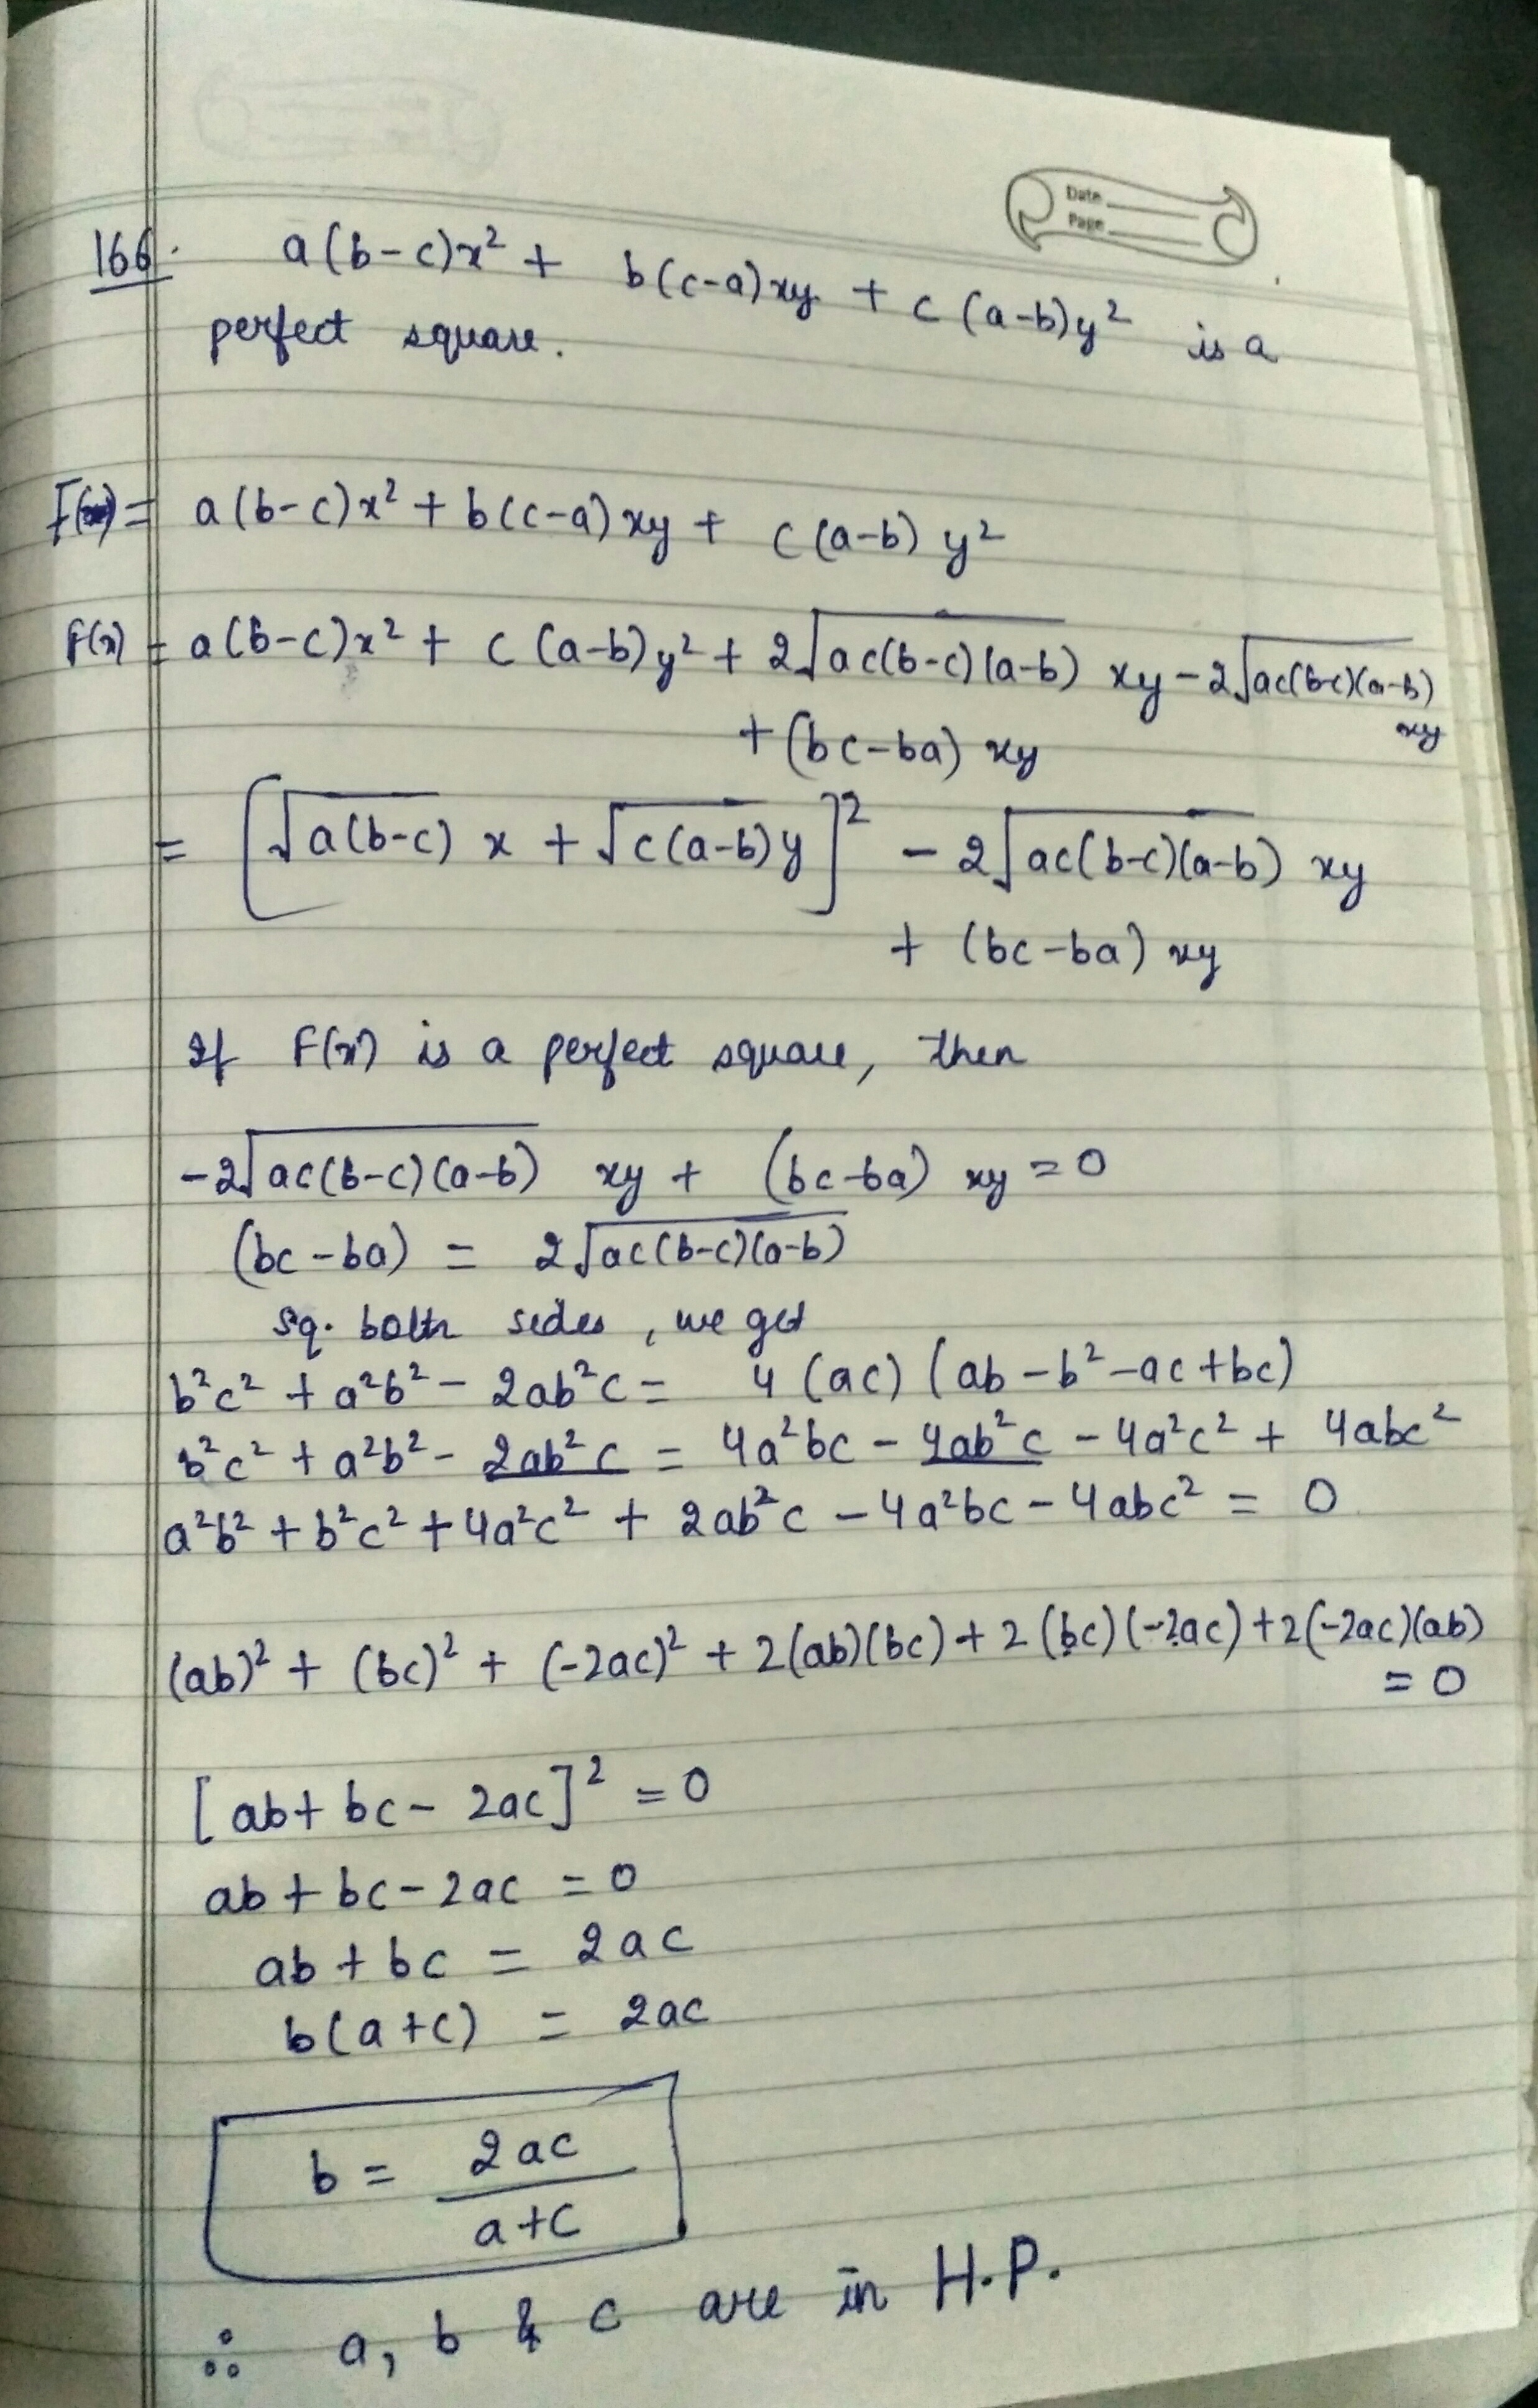 Date
Page
166. a(b-c)x² + b(c-a)xy + c(a-b)y² is a
perfect square.
F(x) = a(b-c)x² + b(c-a)xy + c(a-b)y²
F(x) = a(b-c)x² + c(a-b)y² + 2√ac(b-c)(a-b) xy - 2√ac(b-c)(a-b) xy
+ (bc-ba) xy
= [√a(b-c) x + √c(a-b) y]² - 2√ac(b-c)(a-b) xy
+ (bc-ba) xy
If F(x) is a perfect square, then
-2√ac(b-c)(a-b) xy + (bc-ba) xy = 0
(bc-ba) = 2√ac(b-c)(a-b)
sq. both sides, we get
b²c² + a²b² - 2ab²c = 4(ac)(ab-b²-ac+bc)
b²c² + a²b² - 2ab²c = 4a²bc - 4ab²c - 4a²c² + 4abc²
a²b² + b²c² + 4a²c² + 2ab²c - 4a²bc - 4abc² = 0
(ab)² + (bc)² + (-2ac)² + 2(ab)(bc) + 2(bc)(-2ac) + 2(-2ac)(ab)
= 0
[ab + bc - 2ac]² = 0
ab + bc - 2ac = 0
ab + bc = 2ac
b(a+c) = 2ac
b = 2ac / a+c
∴ a, b & c are in H.P.